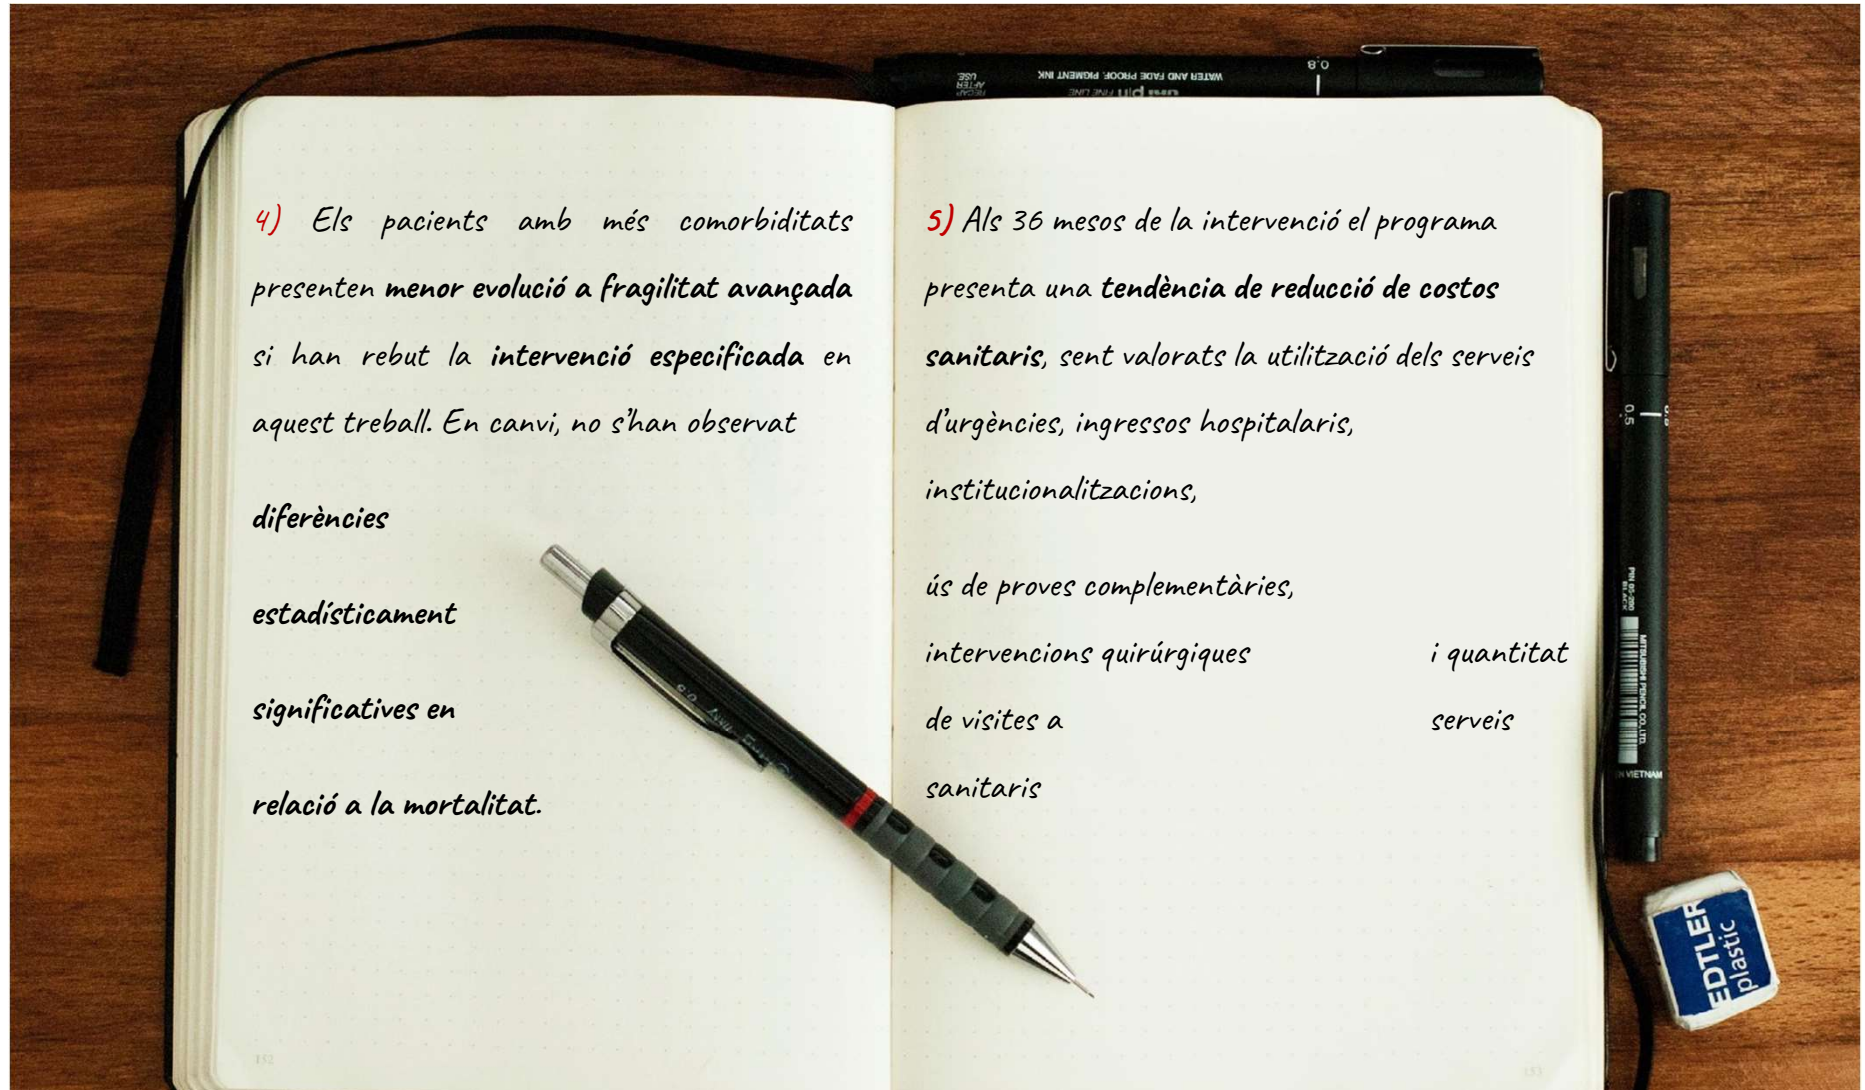 WATER AND FADE PROOF. PIGMENT INK
uni pin FINE LINE
RECAP
AFTER
USE.
0.8
4) Els pacients amb més comorbiditats
presenten menor evolució a fragilitat avançada
si han rebut la intervenció especificada en
aquest treball. En canvi, no s'han observat
diferències
estadísticament
significatives en
relació a la mortalitat.
152
5) Als 36 mesos de la intervenció el programa
presenta una tendència de reducció de costos
sanitaris, sent valorats la utilització dels serveis
d'urgències, ingressos hospitalaris,
institucionalitzacions,
ús de proves complementàries,
intervencions quirúrgiques i quantitat
de visites a serveis
sanitaris
153
0.5
MITSUBISHI PENCIL CO., LTD.
VIETNAM
EDTLER
plastic